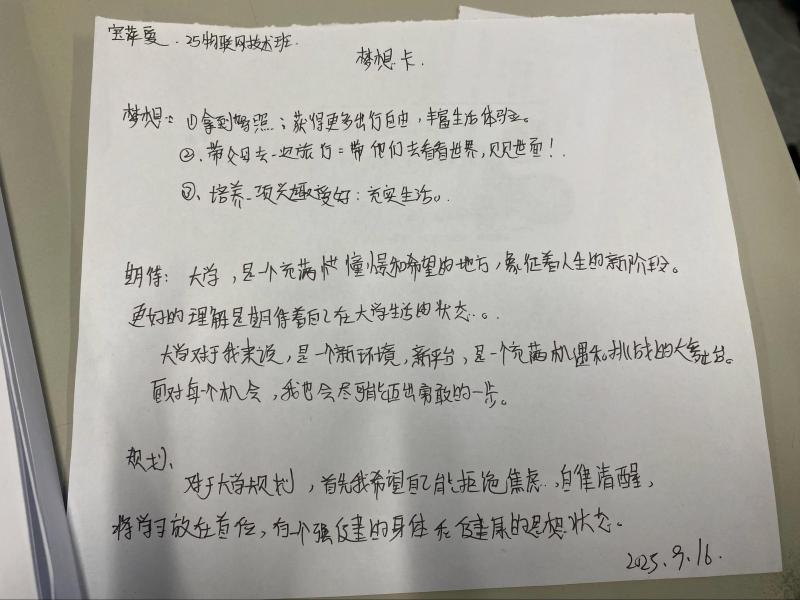 宝萍夏. 25物联网技术班.
梦想卡.
梦想:①拿到驾照;获得更多出行自由,丰富生活体验。
②.带父母去一次旅行=带他们去看看世界,见见世面!.
③、培养一项兴趣爱好:充实生活。.
期待: 大学,是个充满憧憬和希望的地方,象征着人生的新阶段。
更好的理解是期待着自己在大学生活的状态..。
大学对于我来说,是一个新环境,新平台,是一个充满机遇和挑战的大舞台。
面对每个机会,我也会尽可能迈出勇敢的一步。
规划、
对于大学规划,首先我希望自己能拒绝焦虑..,自律清醒,
将学习放在首位,有一个强健的身体和健康的思想状态。
2025.9.16.